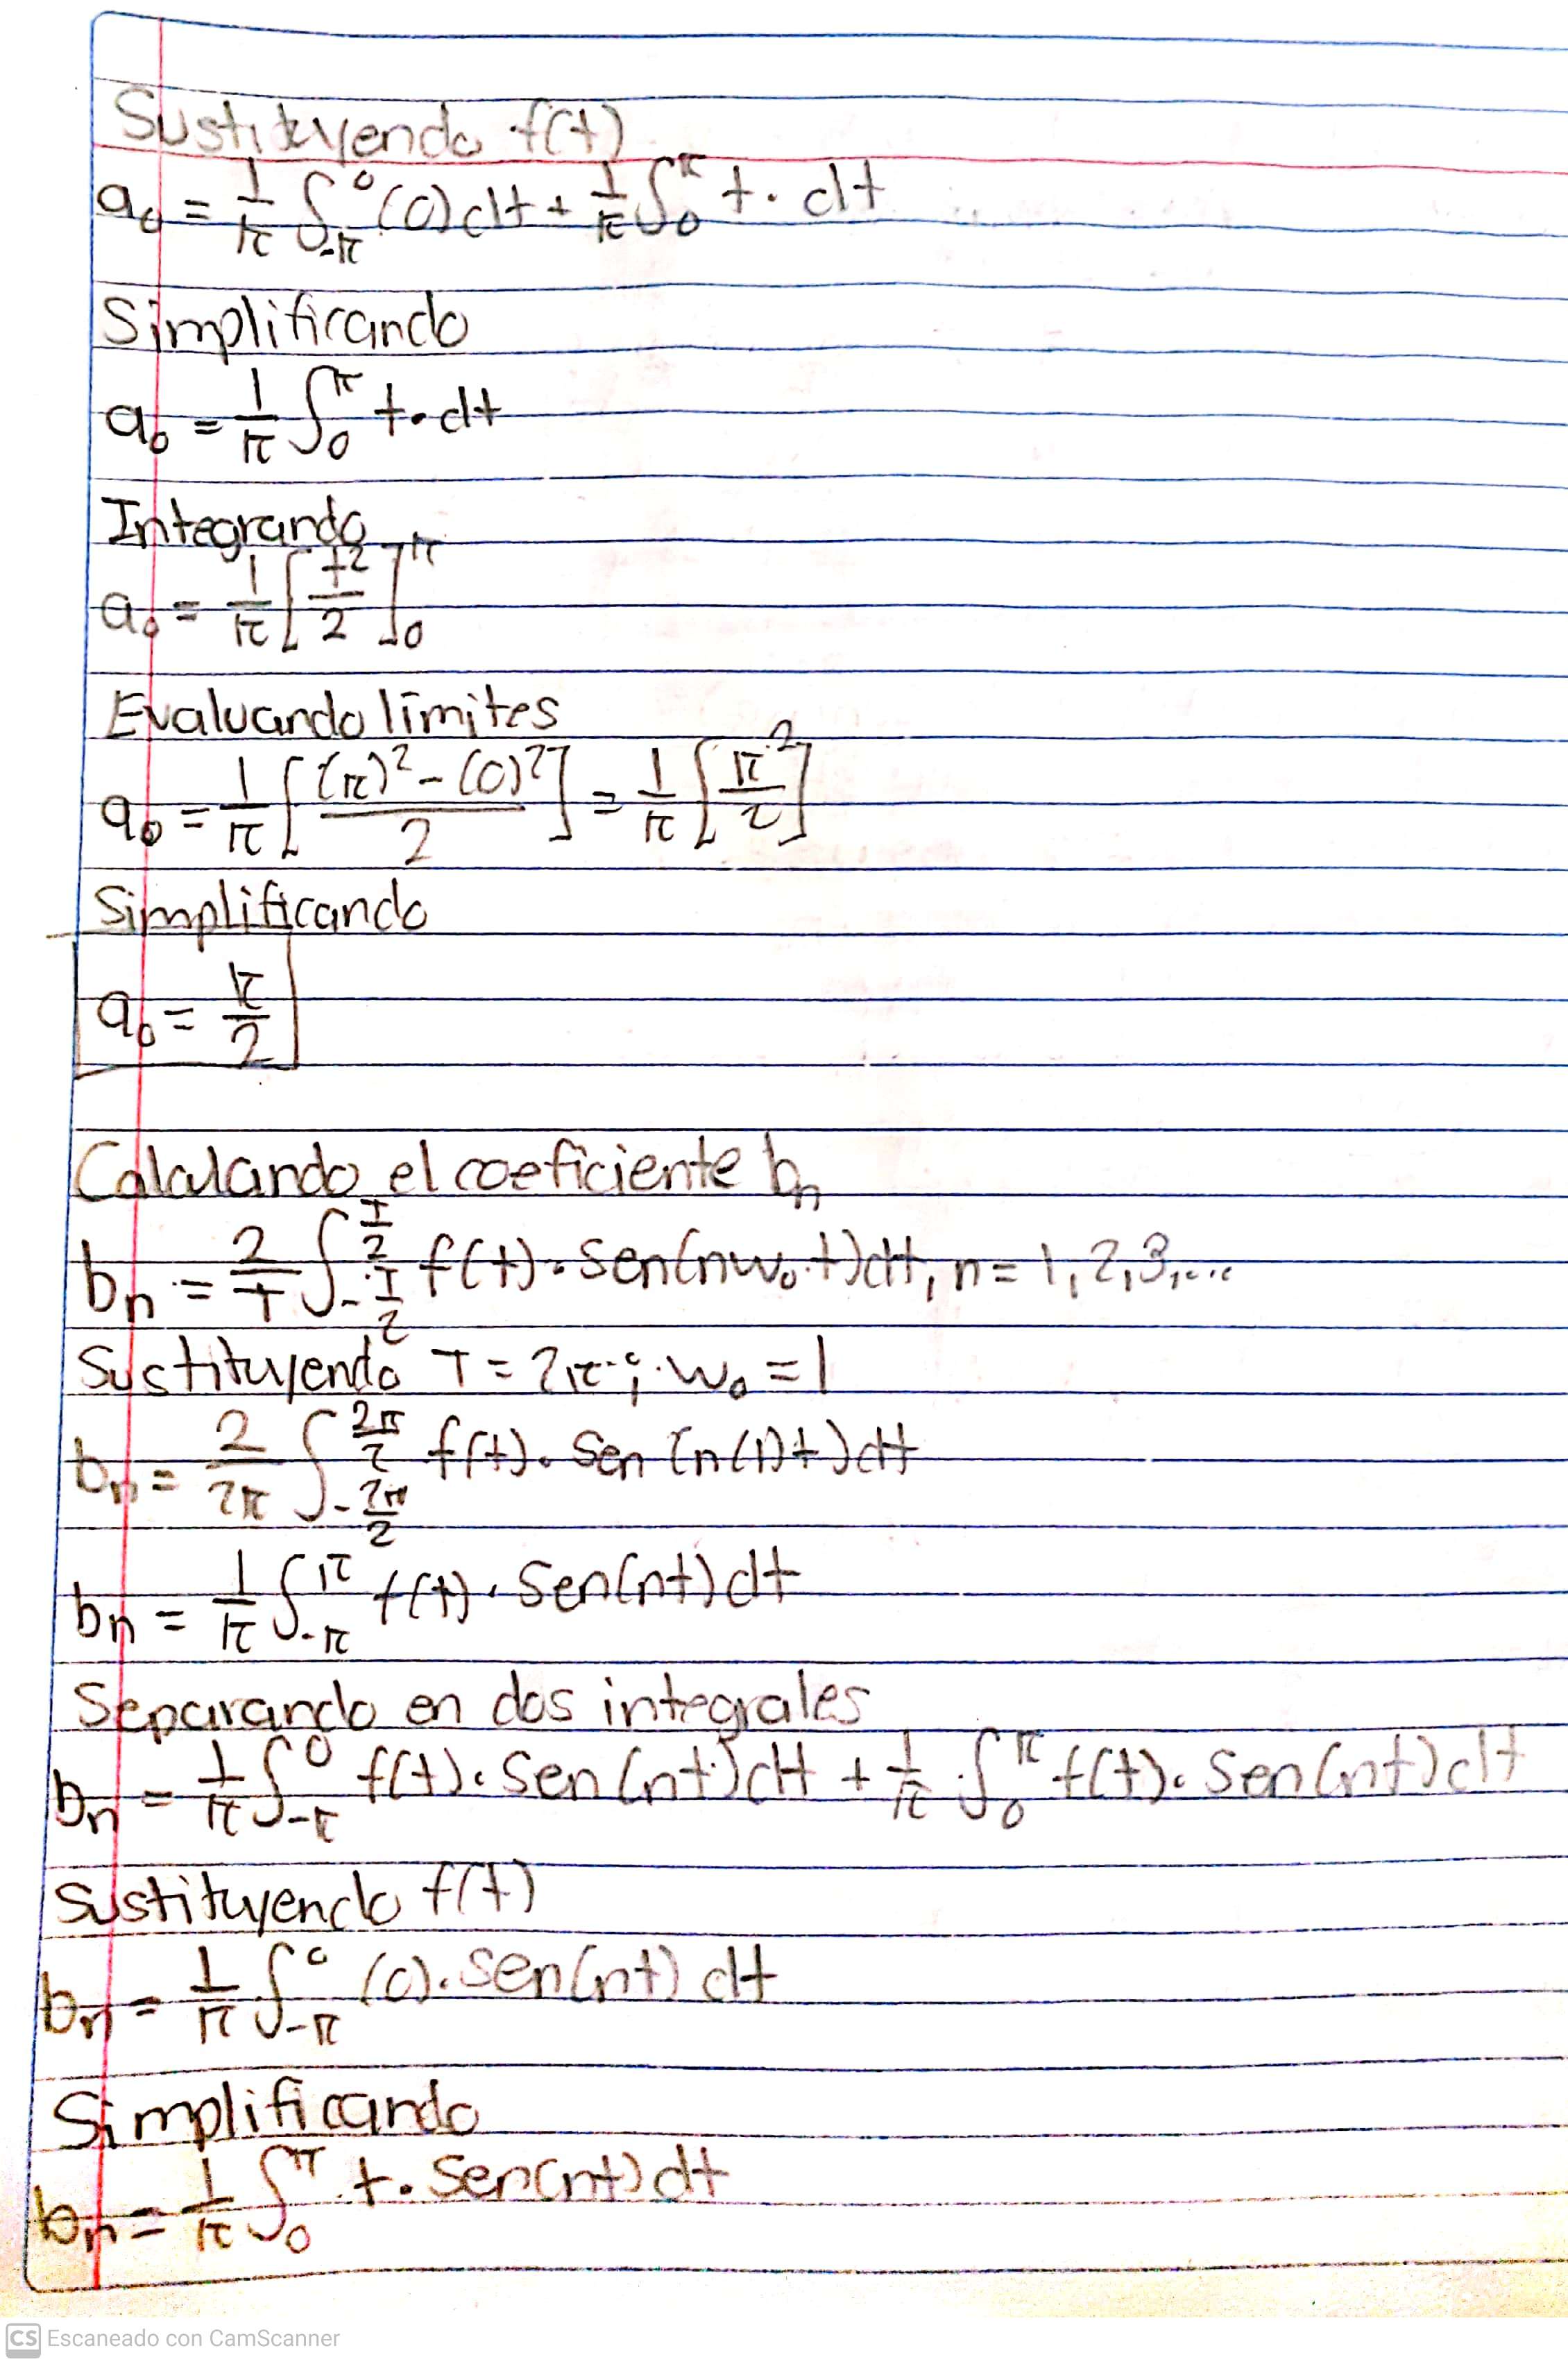 Sustituyendo f(t)
a₀ = 1/π ∫_{-π}^{0} (0) dt + 1/π ∫_{0}^{π} t · dt
Simplificando
a₀ = 1/π ∫_{0}^{π} t · dt
Integrando
a₀ = 1/π [t²/2]_{0}^{π}
Evaluando límites
a₀ = 1/π [((π)² - (0)²)/2] = 1/π [π²/2]
Simplificando
a₀ = π/2
Calculando el coeficiente bₙ
bₙ = 2/T ∫_{-T/2}^{T/2} f(t) · Sen(nω₀·t) dt, n = 1, 2, 3, ...
Sustituyendo T = 2π ; ω₀ = 1
bₙ = 2/2π ∫_{-2π/2}^{2π/2} f(t) · Sen (n(1)t) dt
bₙ = 1/π ∫_{-π}^{π} f(t) · Sen(nt) dt
Separando en dos integrales
bₙ = 1/π ∫_{-π}^{0} f(t) · Sen (nt) dt + 1/π · ∫_{0}^{π} f(t) · Sen(nt) dt
Sustituyendo f(t)
bₙ = 1/π ∫_{-π}^{0} (0) · Sen(nt) dt
Simplificando
bₙ = 1/π ∫_{0}^{π} t · Sen(nt) dt
CS Escaneado con CamScanner